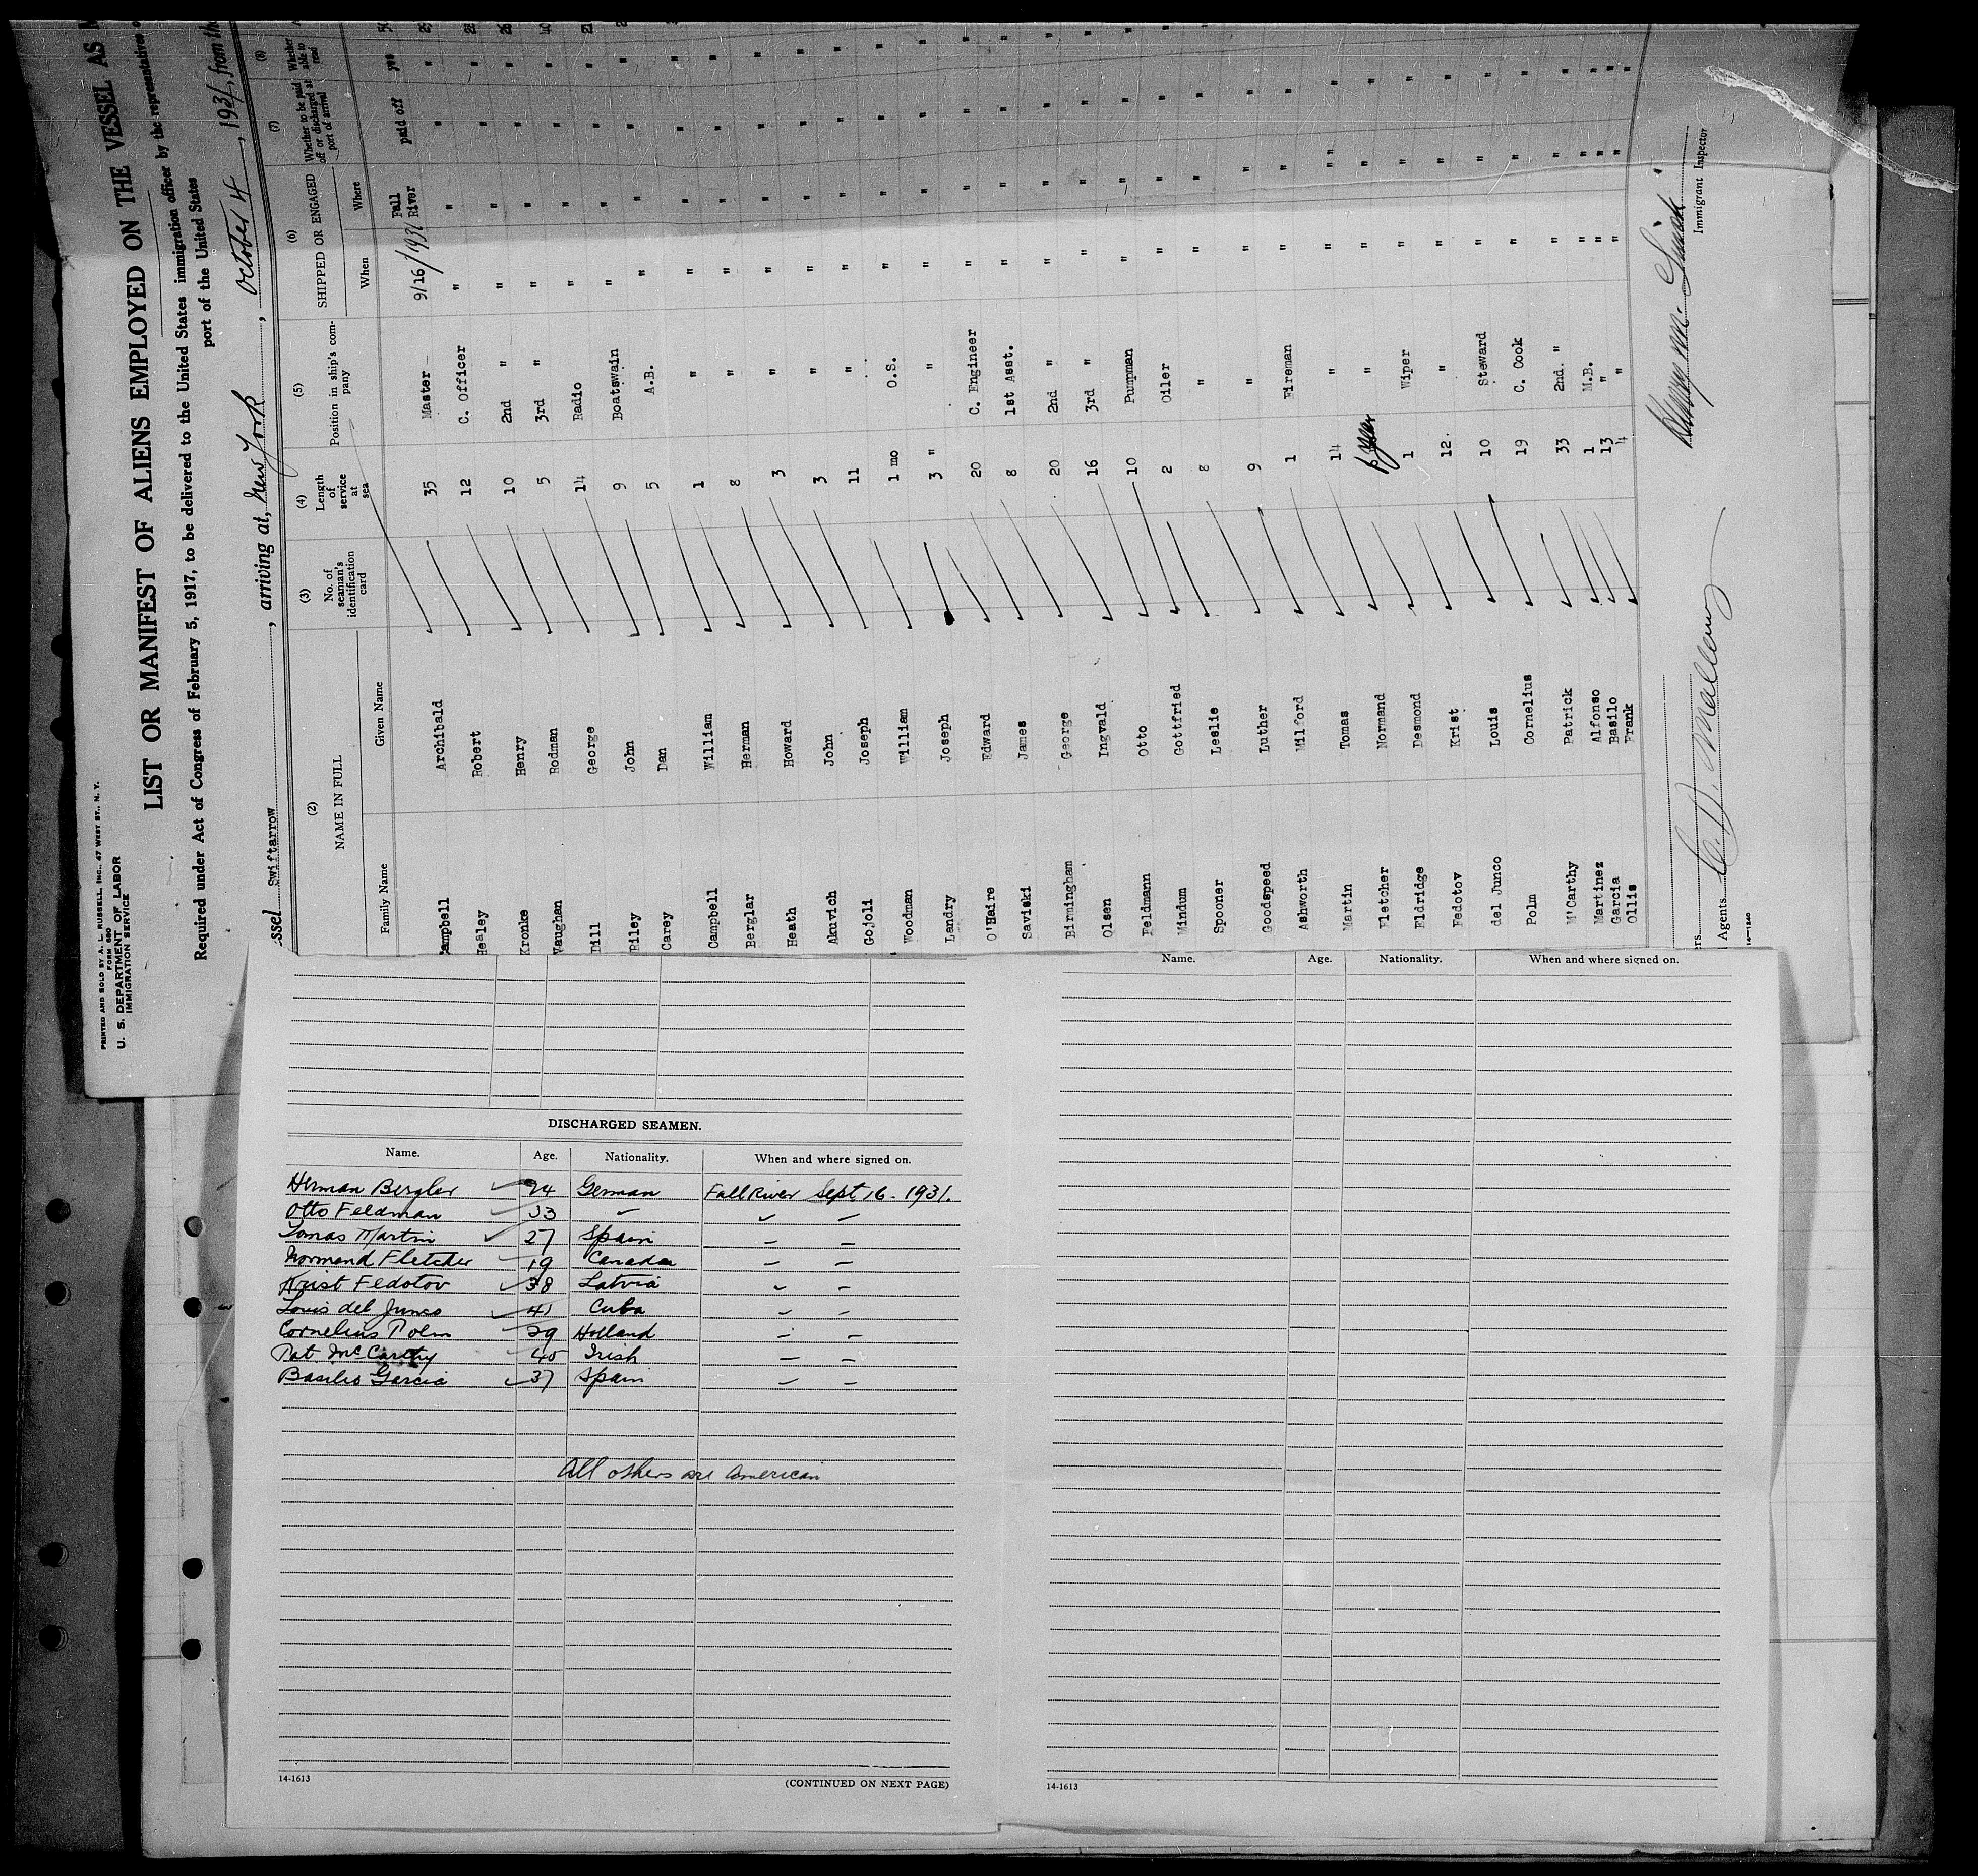 PRINTED AND SOLD BY A. L. RUSSELL, INC., 47 WEST ST., N. Y.
FORM 680
U. S. DEPARTMENT OF LABOR
IMMIGRATION SERVICE
LIST OR MANIFEST OF ALIENS EMPLOYED ON THE VESSEL AS M
Required under Act of Congress of February 5, 1917, to be delivered to the United States immigration officer by the representatives
port of the United States
ssel Swiftarrow, arriving at, New York, October 4, 1931, from th
(2) (3) (4) (5) (6) (7) (8)
NAME IN FULL No. of seaman's identification card Length of service at sea Position in ship's company SHIPPED OR ENGAGED Whether to be paid off or discharged at port of arrival Whether able to read
Family Name Given Name When Where
Campbell Archibald 35 Master 9/16/1931 Fall River paid off yes
Healey Robert 12 C. Officer " " " "
Kronke Henry 10 2nd " " " " "
Vaughan Rodman 5 3rd " " " " "
Dill George 14 Radio " " " "
Riley John 9 Boatswain " " " "
Carey Dan 5 A.B. " " " "
Campbell William 1 " " " " "
Berglar Herman 8 " " " " "
Heath Howard 3 " " " " "
Akurich John 3 " " " " "
Gojoli Joseph 11 " " " " "
Woodman William 1 mo O.S. " " " "
Landry Joseph 3 " " " " " "
O'Haire Edward 20 C. Engineer " " " "
Saviski James 8 1st Asst. " " " "
Birmingham George 20 2nd " " " " "
Olsen Ingvald 16 3rd " " " " "
Feldmann Otto 10 Pumpman " " " "
Mindum Gottfried 2 Oiler " " " "
Spooner Leslie 8 " " " " "
Goodspeed Luther 9 " " " " "
Ashworth Milford 1 Fireman " " " "
Martin Tomas 14 " " " " "
Fletcher Normand " " " " "
Eldridge Desmond 1 Wiper " " " "
Fedotov Krist 12. " " " " "
del Junco Louis 10 Steward " " " "
Polm Cornelius 19 C. Cook " " " "
McCarthy Patrick 33 2nd. " " " " "
Martinez Alfonso 1 M.B. " " " "
Garcia Basilo 13 " " " " "
Ollis Frank 4 " " " " "
Immigrant Inspector
rs
Agents.
14—1240
DISCHARGED SEAMEN.
Name. Age. Nationality. When and where signed on.
Herman Bergler 24 German Fall River Sept 16 - 1931.
Otto Feldman 33 " " "
Tomas Martin 27 Spain " "
Normand Fletcher 19 Canada " "
Krist Fedotov 38 Latvia " "
Louis del Junco 41 Cuba " "
Cornelius Polm 39 Holland " "
Pat. McCarthy 40 Irish " "
Basilio Garcia 37 Spain " "
All others are American
14-1613
(CONTINUED ON NEXT PAGE)
Name. Age. Nationality. When and where signed on.
14-1613